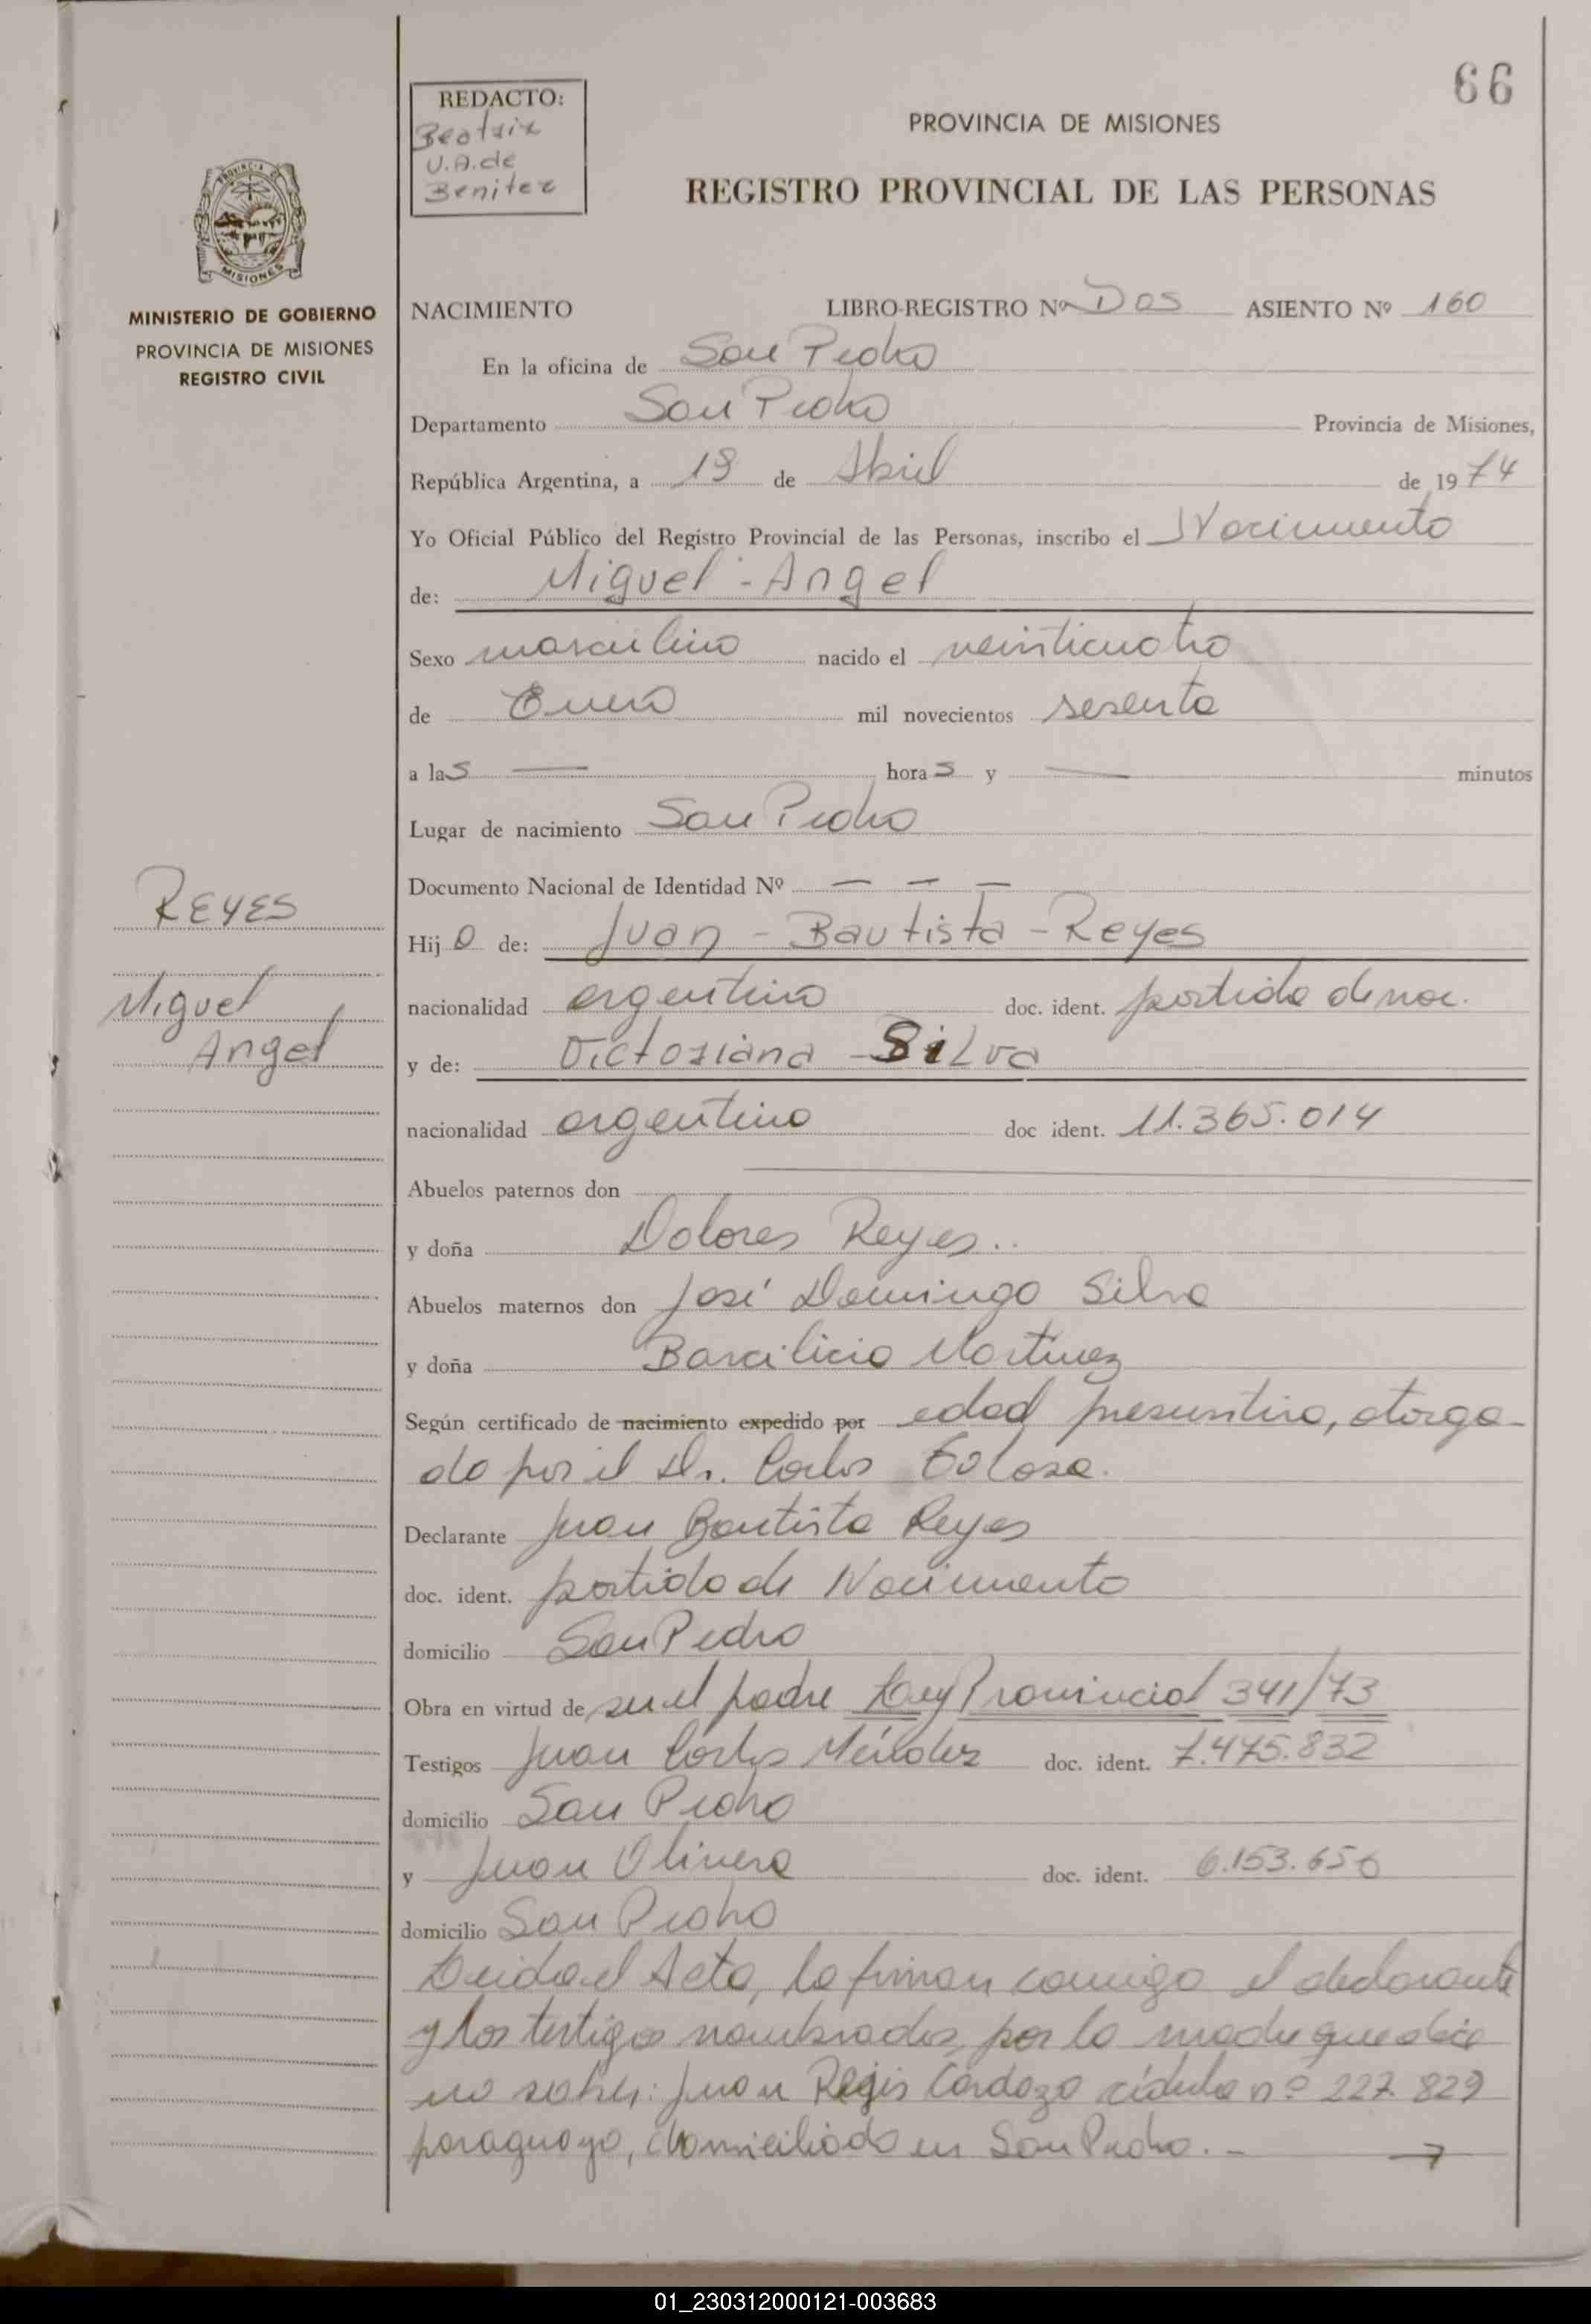 66
REDACTO:
Beatriz
U.A. de
Benitez
PROVINCIA DE MISIONES
REGISTRO PROVINCIAL DE LAS PERSONAS
PROVINCIA DE
MISIONES
MINISTERIO DE GOBIERNO
PROVINCIA DE MISIONES
REGISTRO CIVIL
NACIMIENTO LIBRO-REGISTRO Nº Dos ASIENTO Nº 160
En la oficina de San Pedro
Departamento San Pedro Provincia de Misiones,
República Argentina, a 19 de Abril de 1974
Yo Oficial Público del Registro Provincial de las Personas, inscribo el Nacimiento
de: Miguel - Angel
Sexo masculino nacido el veinticuatro
de Enero mil novecientos sesenta
a las — horas y — minutos
Lugar de nacimiento San Pedro
Documento Nacional de Identidad Nº — — —
REYES
Miguel
Angel
Hijo de: Juan - Bautista - Reyes
nacionalidad argentina doc. ident. partida de nac.
y de: Victoriana - Silva
nacionalidad argentina doc ident. 11.365.014
Abuelos paternos don —
y doña Dolores Reyes..
Abuelos maternos don José Domingo Silva
y doña Barcilicia Martinez
Según certificado de nacimiento expedido por edad presuntiva, otorga-
do por el Dr. Carlos Tolosa.
Declarante Juan Bautista Reyes
doc. ident. partida de Nacimiento
domicilio San Pedro
Obra en virtud de ser el padre Ley Provincial 341/73
Testigos Juan Carlos Méndez doc. ident. 7.475.832
domicilio San Pedro
y Juan Olivera doc. ident. 6.153.656
domicilio San Pedro
Leida el Acta, la firman conmigo el declarante
y los testigos nombrados, por la madre que dice
no saber: Juan Regis Cardozo cédula nº 227.829
paraguayo, domiciliado en San Pedro. -
01_230312000121-003683